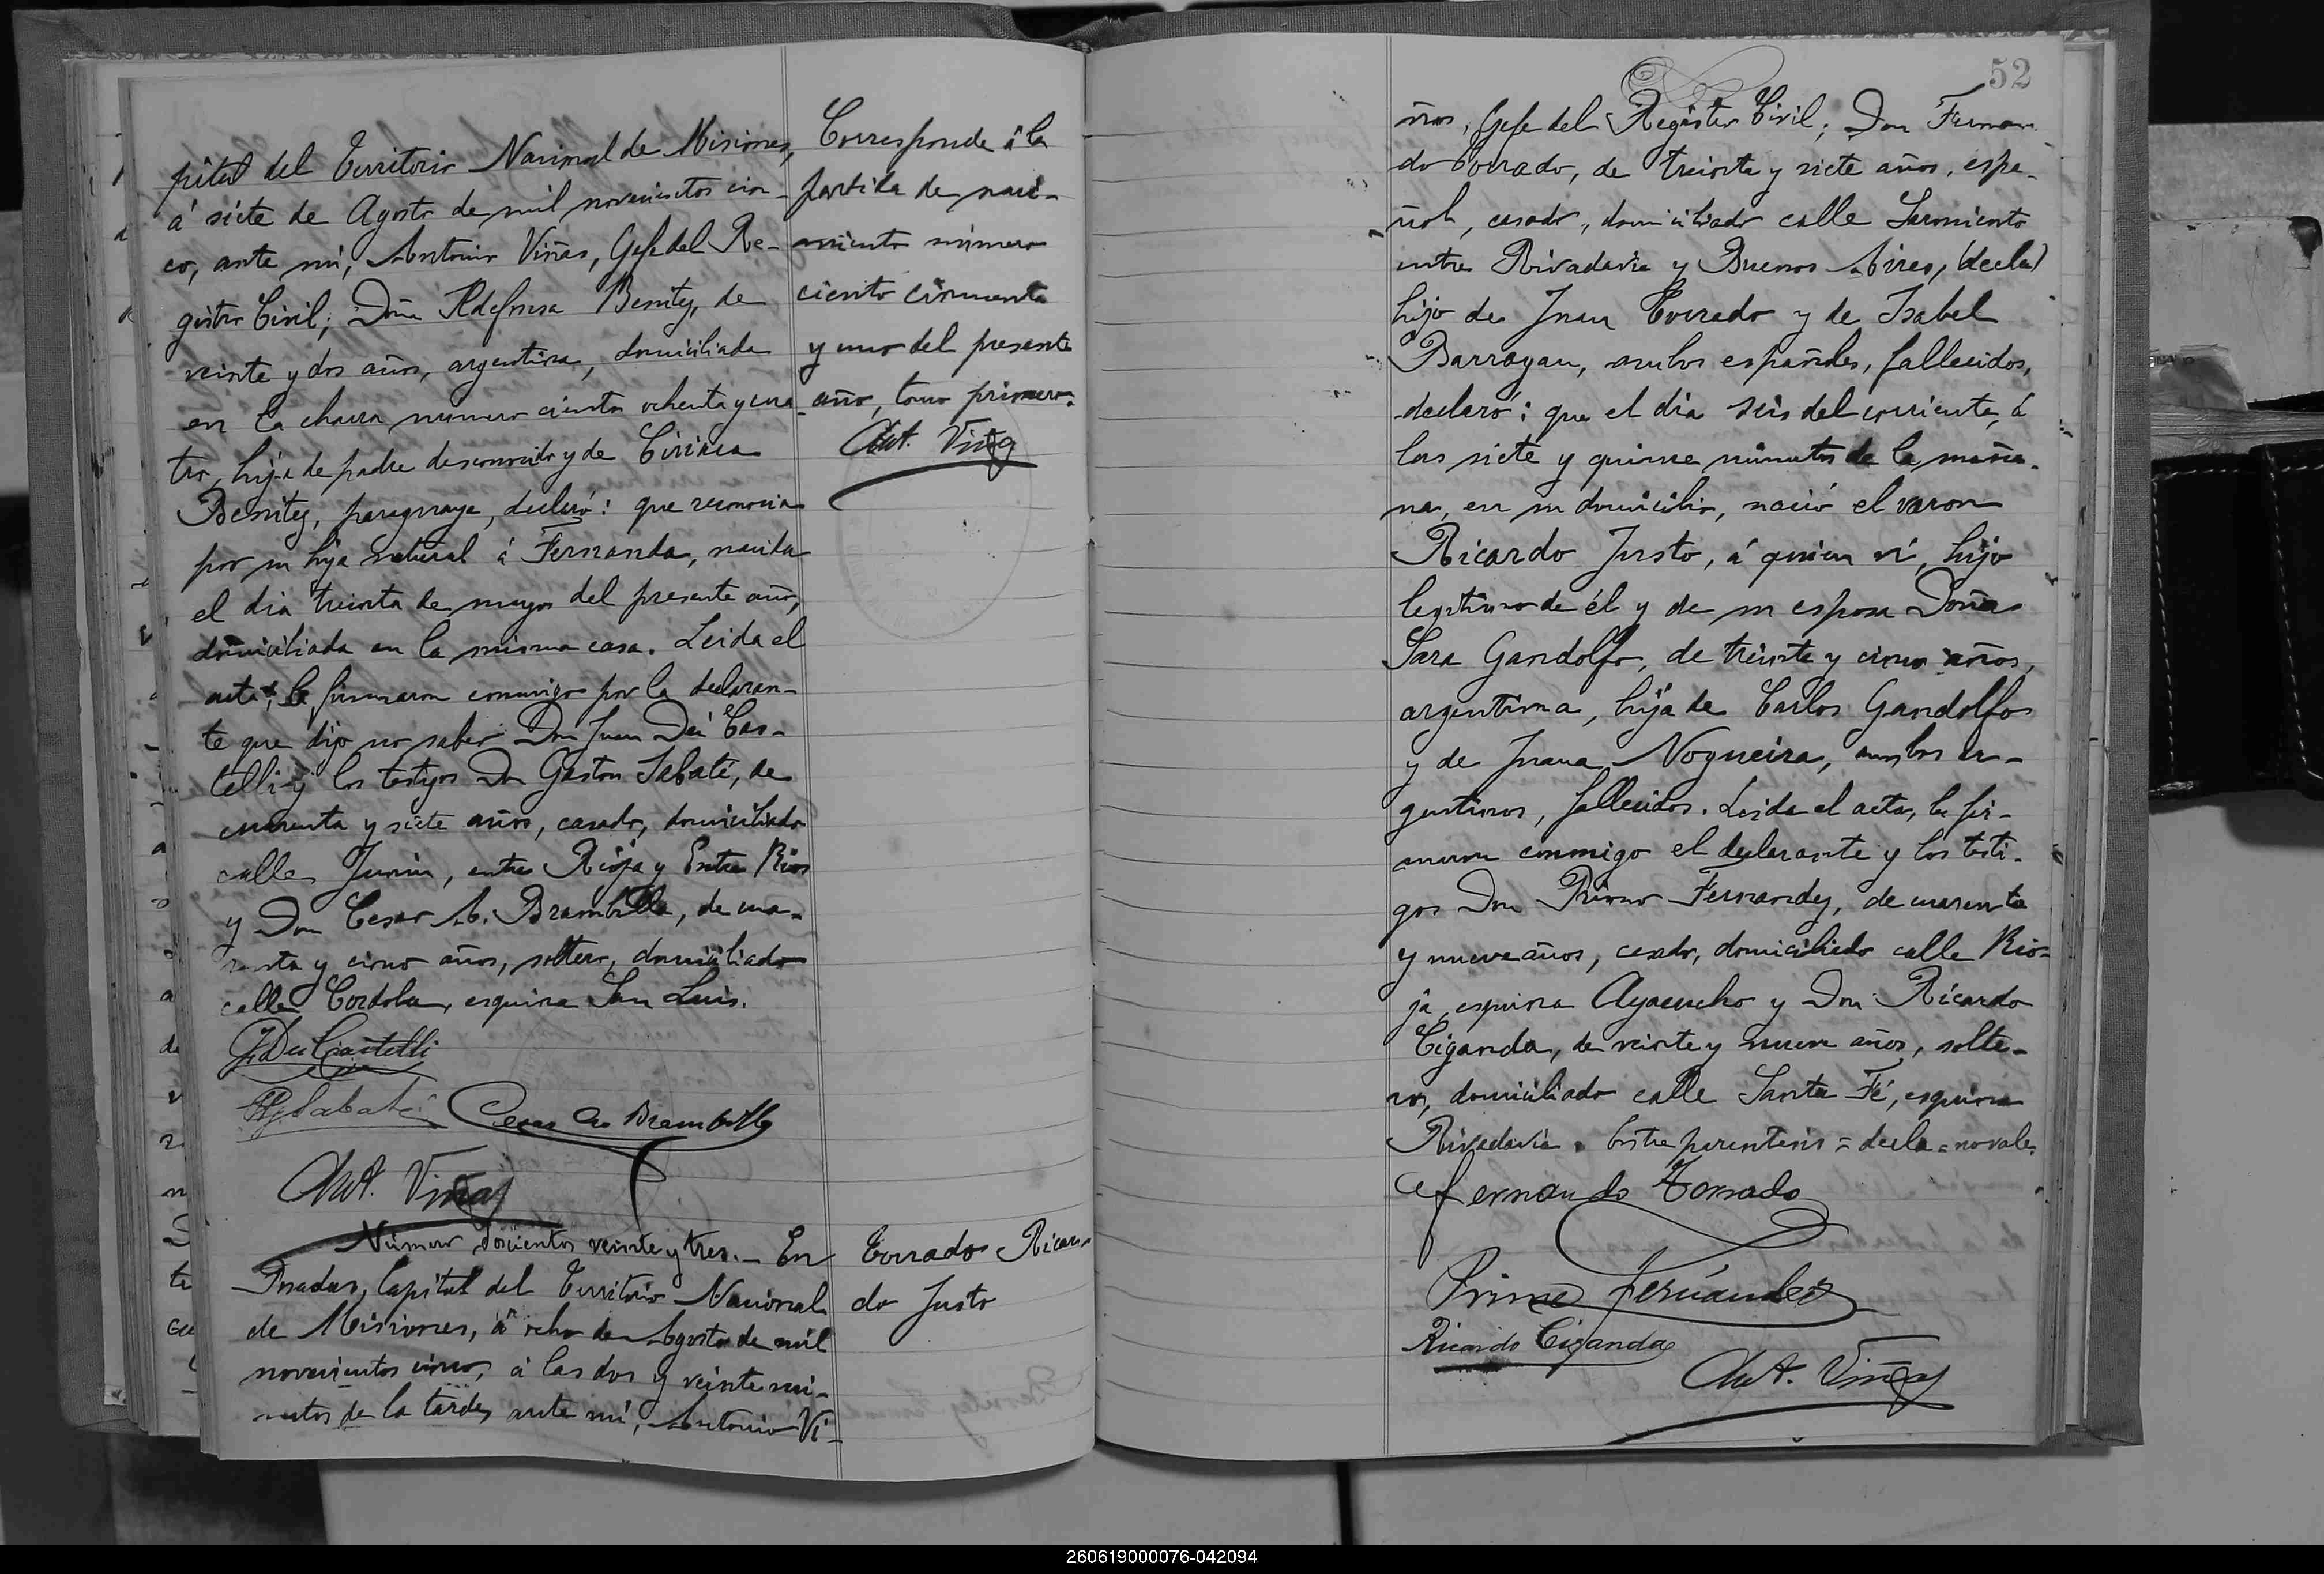 pital del Territorio Nacional de Misiones,
á siete de Agosto de mil novecientos cin-
co, ante mi, Antonio Viñas, Gefe del Re-
gistro Civil; Doña Ildefonsa Benitez, de
veinte y dos años, argentina, domiciliada
en la chacra numero ciento ochenta y cua
tro, hija de padre desconocido y de Ciriaca
Benitez, paraguaya, declaró: que reconocia
por su hija natural á Fernanda, nacida
el dia treinta de mayo del presente año,
domiciliada en la misma casa. Leida el
acta, la firmaron conmigo por la declaran-
te que dijo no saber Don Juan Dei Cas-
telli y los testigos Don Gaston Sabaté, de
cuarenta y siete años, casado, domiciliado
calle Junin, entre Rioja y Entre Rios
y Don Cesar A. Brambilla, de cua-
renta y cinco años, soltero, domiciliado
calle Cordoba, esquina San Luis.
J. Dei Castelli
Sabaté
Cesar A. Brambilla
Ant. Viñas
Número doscientos veinte y tres. - En
Posadas, Capital del Territorio Nacional
de Misiones, á ocho de Agosto de mil
novecientos cinco, á las dos y veinte mi-
nutos de la tarde, ante mi, Antonio Vi-
Corresponde á la
partida de naci-
miento número
ciento cincuenta
y uno del presente
año, tomo primero.
Ant. Viñas
Torrado Ricar-
do Justo
52
ñas, Gefe del Registro Civil; Don Fernan
do Torrado, de treinta y siete años, espa-
ñol, casado, domiciliado calle Sarmiento
entre Rivadavia y Buenos Aires, (decla)
hijo de Juan Torrado y de Isabel
Barragan, ambos españoles, fallecidos,
declaró: que el dia seis del corriente, á
las siete y quince minutos de la maña-
na, en su domicilio, nació el varon
Ricardo Justo, á quien ví, hijo
legitimo de él y de su esposa Doña
Sara Gandolfo, de treinta y cinco años,
argentina, hija de Carlos Gandolfo
y de Juana Nogueira, ambos ar-
gentinos, fallecidos. Leida el acta, la fir-
maron conmigo el declarante y los testi-
gos Don Primo Fernandez, de cuarenta
y nueve años, casado, domiciliado calle Rio-
ja, esquina Ayacucho y Don Ricardo
Ciganda, de veinte y nueve años, solte-
ro, domiciliado calle Santa Fé, esquina
Rivadavia. Entre parentesis = decla = no vale.
Fernando Torrado
Primo Fernandez
Ricardo Ciganda
Ant. Viñas
260619000076-042094